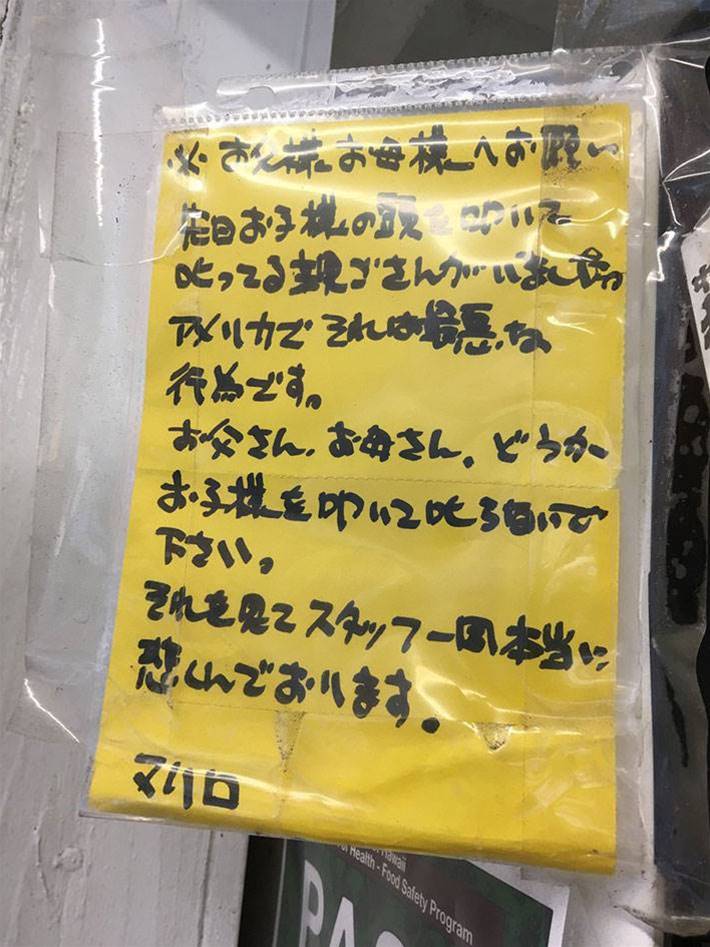 ※ お父様お母様へお願い
先日お子様の頭を叩いて
叱ってる親ごさんがいました。
アメリカでそれは最悪な
行為です。
お父さん、お母さん、どうか
お子様を叩いて叱らないで
下さい。
それを見てスタッフ一同本当に
悲しんでおります。
マリロ
Hawaii
of Health - Food Safety Program
PAS